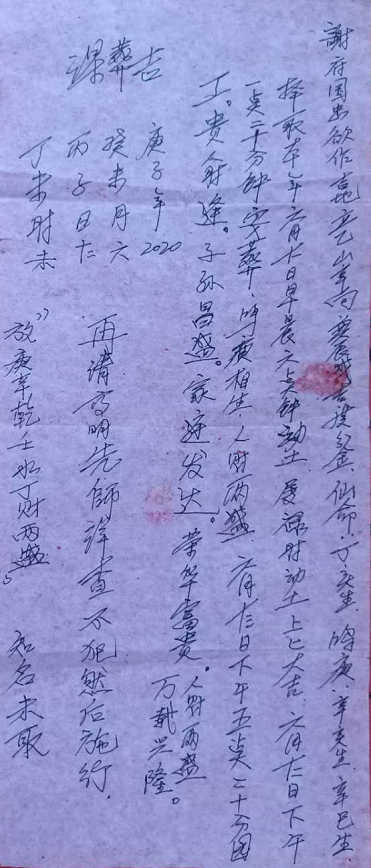 謝府国忠欲作吉地立乙山辛向兼辰戌吉度分金仙命丁亥生時庚辛亥生辛巳生
择取本年六月十日早晨六点钟動土是禄时动土上上大吉六月十日下午
一点二十分钟安葬時庚相生人財两盛六月十日下午五点二十分圆
工。贵命逢。子孙昌盛。家運发达。荣华富贵。人財两盛
万载兴隆。
课葬吉
庚子年2020
癸未月六
丙子日十
丁未时未
再请高明先師详查不犯然后施行.
放庚辛乾壬水丁财两盛
知名未取